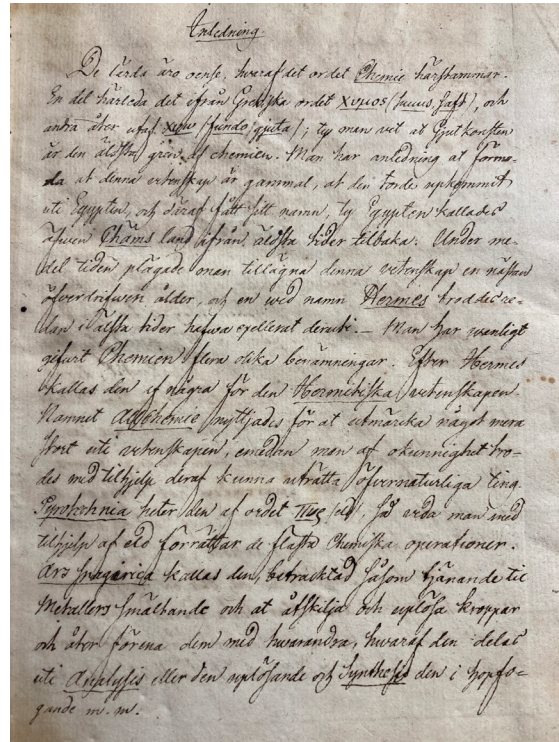 Inledning.
De lärda äro oense, hwaraf det ordet Chemie härstammar.
En del härleda det ifrån Grekiska ordet χυμος (succus, saft), och
andra åter utaf χεω (fundo, gjuta); ty man vil at Gjutkonsten
är den äldsta gren af chemien. Man har anledning at förmo-
da at denna vetenskap är gammal, at den torde upkommit
uti Egypten, och däraf fått sitt namn, ty Egypten kallades
äfwen Chams land ifrån äldsta tider tilbaka. Under me-
del tiden plägade man tillägna denna vetenskap en nästan
öfverdrifwen ålder, och en wid namn Hermes troddes re-
dan i älsta tider hafwa excellerat deruti. — Man har wanligt
gifwit Chemien flera olika benämningar. Efter Hermes
kallas den af några för den Hermetiska vetenskapen.
Namnet Alchemie nyttjades för at utmärka något mera
stort uti vetenskapen, emedan man af okunnighet tro-
des med tilhjelp deraf kunna uträtta öfvernaturliga ting.
Pyrotechnia heter den af ordet Πυρ eld. så vida man med
tilhjelp af eld förrättar de flesta Chemiska operationer.
Ars spagirica kallas den, betracktad såsom tjänande til
Metallers smältande och at åfskilja och uplösa kroppar
och åter förena dem med hwarandra, hwaraf den delas
uti Analysis eller den uplösande och Synthesis den i hopfo-
gande m. m.